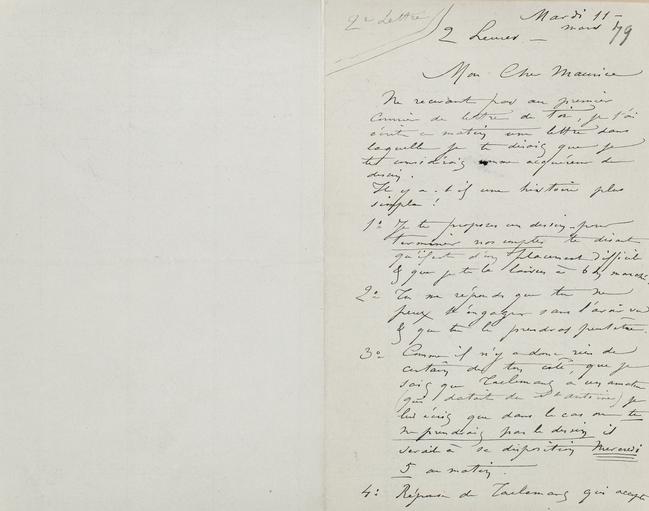 2e Lettre
Mardi 11 -
mars 79
2 heures -
Mon Cher Maurice
Ne recevant pas au premier
courrier de lettre de toi, je t'ai
écrit ce matin une lettre dans
laquelle je te disais que je
te considérais comme acquéreur du
dessin.
Il y a-t-il une histoire plus
simple !
1° Je te propose un dessin pour
terminer nos comptes te disant
qu'il est d'un placement difficile
& que je te le laisse à
2° Tu me réponds que tu ne
peux t'engager sans l'avoir vu
& que tu le prendras peut-être.
3° Comme il n'y a donc rien de
certain de ton côté, que je
sais que Taelemans a un amateur
(qui datait du St Antoine) je
lui écris que dans le cas où tu
ne prendrais pas le dessin il
serait à sa disposition Mercredi
5 au matin.
4° Réponse de Taelemans qui accepte